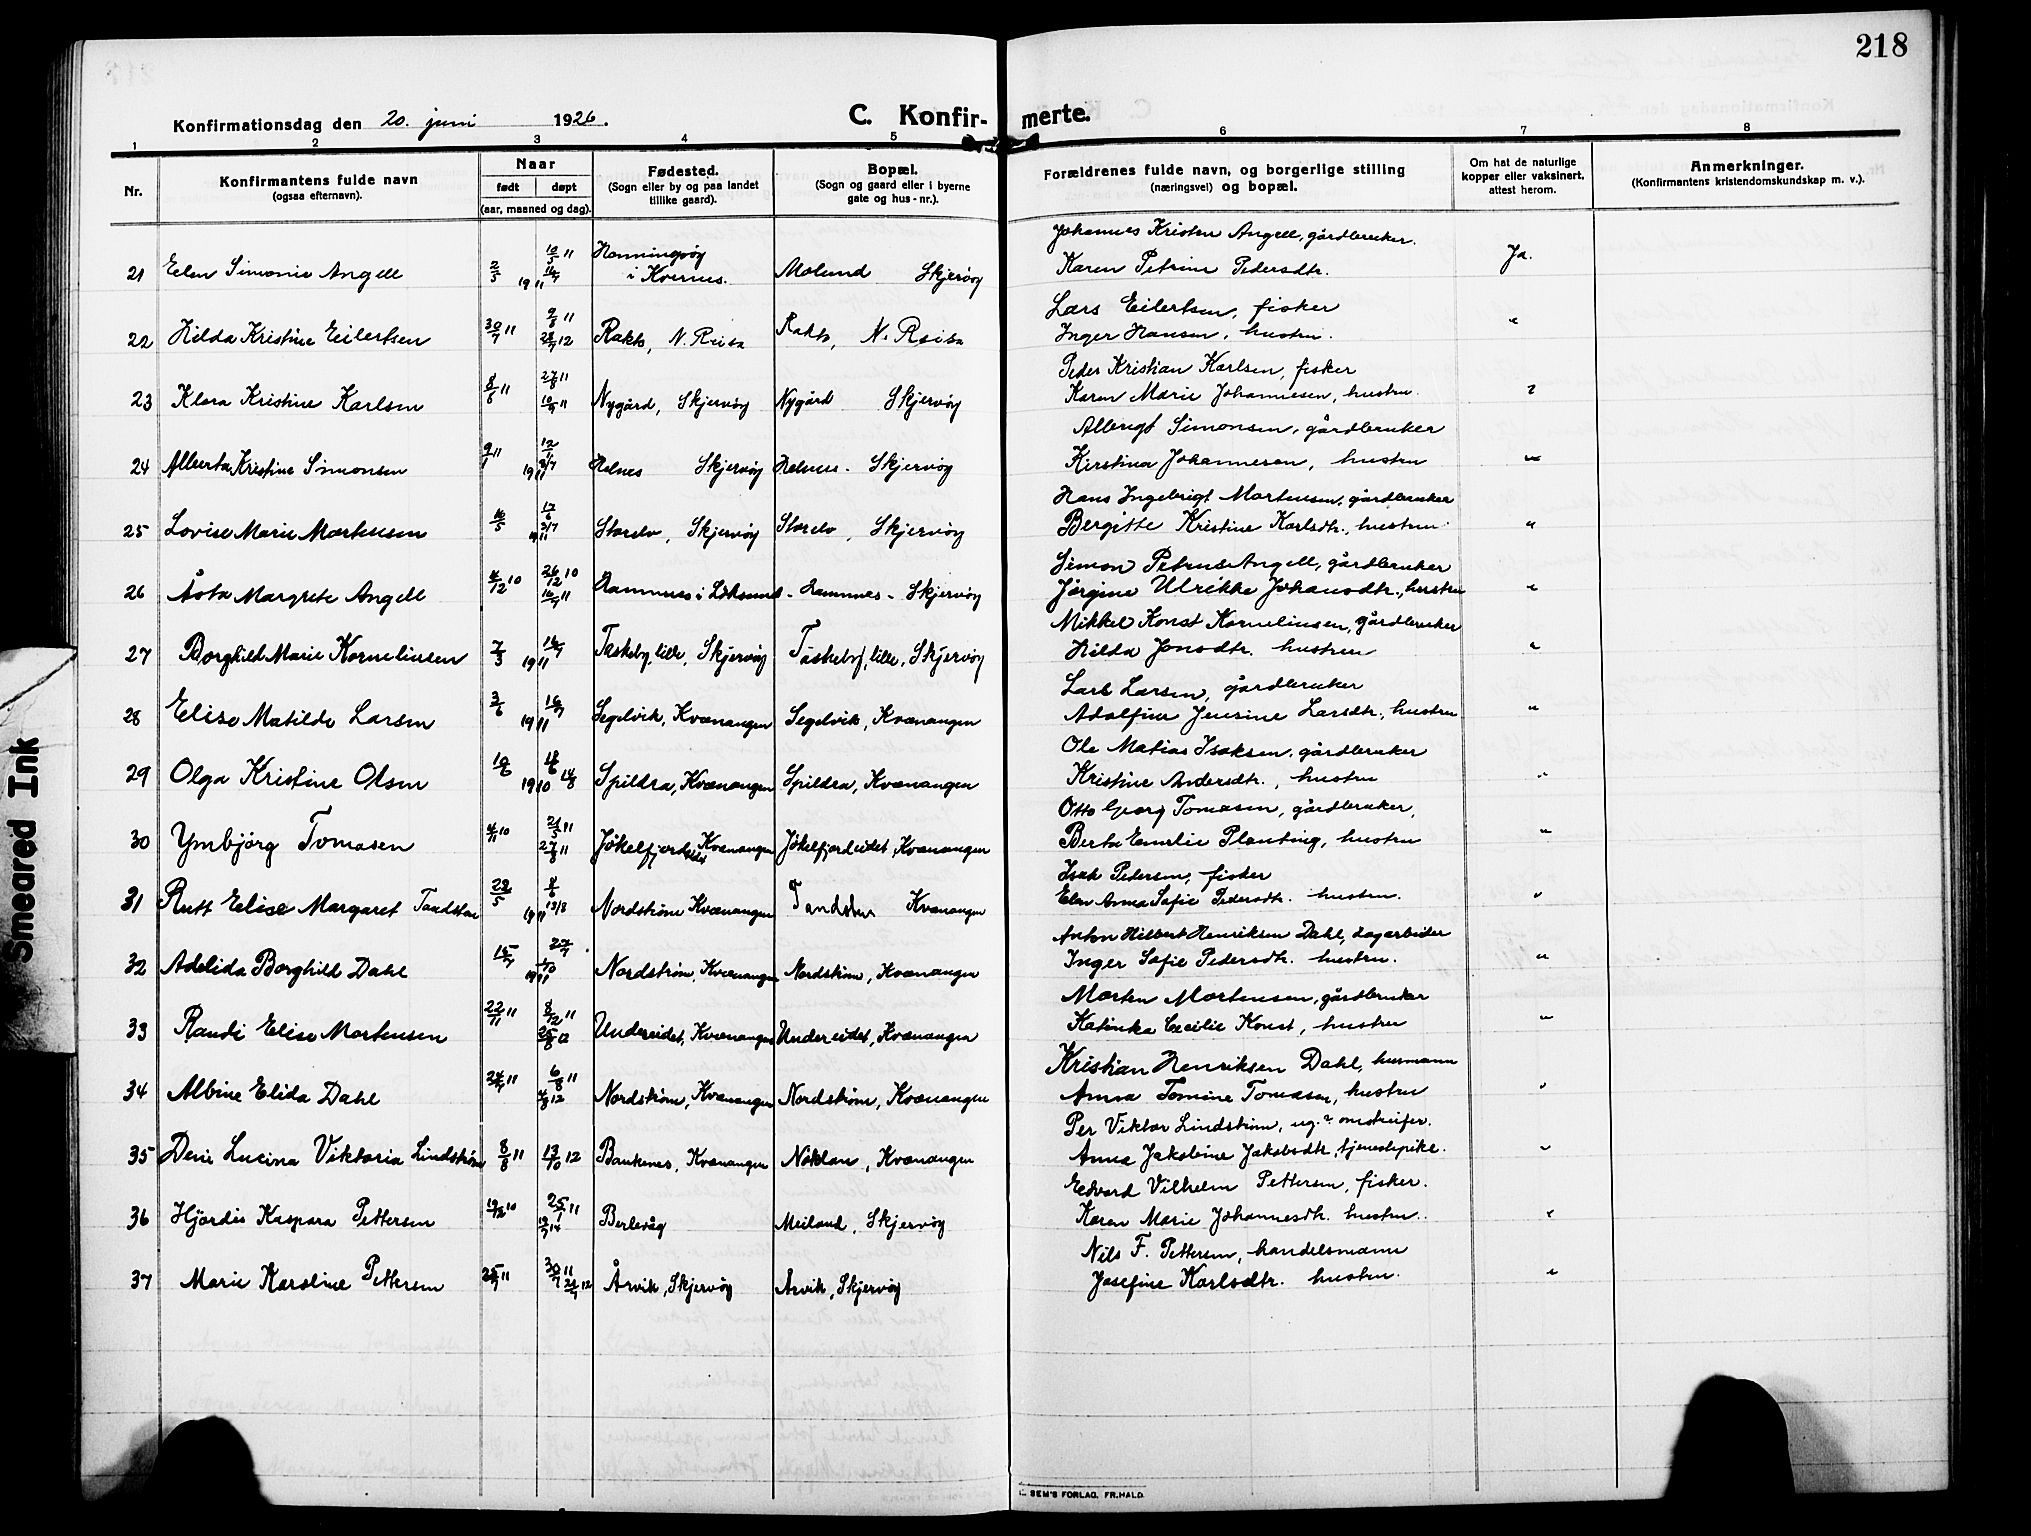 218
Konfirmationsdag den 20. juni 1926.
C. Konfir- merte.
1 2 3 4 5 6 7 8
Nr.
Konfirmantens fulde navn
(ogsaa efternavn).
Naar
født døpt
(aar, maaned og dag).
Fødested.
(Sogn eller by og paa landet
tillike gaard).
Bopæl.
(Sogn og gaard eller i byerne
gate og hus-nr.).
Forældrenes fulde navn, og borgerlige stilling
(næringsvei) og bopæl.
Om hat de naturlige
kopper eller vaksinert,
attest herom.
Anmerkninger.
(Konfirmantens kristendomskundskap m. v.).
Johannes Kristen Angell, gårdbruker.
21 Elen Simonie Angell 2/5 1911 10/5 11 16/7 Honningsvøg i Kvernes. Molund Skjervøy Karen Petrine Pedersdtr. Ja.
Lars Eilertsen, fisker
22 Hilda Kristine Eilertsen 30/7 11 9/8 11 28/7 12 Rakko, N. Reisa Rakko, N. Reisa Inger Hansen, hustru. "
Peder Kristian Karlsen, fisker
23 Klara Kristine Karlsen 8/6 11 27/8 11 10/9 11 Nygård, Skjervøy Nygård Skjervøy Karen Marie Johannesen, hustru.
Albrigt Simonsen, gårdbruker
24 Alberta Kristine Simonsen 9/1 11 12/1 1911 Helnes Skjervøy Helnes - Skjervøy Kirstina Johannesen, hustru "
Hans Ingebrigt Mortensen, gårdbruker
25 Lovise Marie Mortensen 16/5 17/6 1911 Storelv, Skjervøy Storelv, Skjervøy Bergitte Kristine Karlsdtr., hustru. "
Simon Petrus Angell, gårdbruker
26 Åsta Margrete Angell 4/12 10 26/12 10 16/7 11 Hamnnes i Loksund - Hamnnes - Skjervøy Jørgine Ulrikke Johansdtr., hustru "
Mikkel Konst Kornelinsen, gårdbruker
27 Borghild Marie Kornelinsen 7/3 1911 16/7 Taskeby, lille, Skjervøy Taskeby, lille, Skjervøy Hilda Jonsdtr. hustru "
Lars Larsen, gårdbruker
28 Elise Matilde Larsen 3/6 1911 16/7 Segelvik, Kvænangen Segelvik, Kvænangen Adolfine Jensine Larsdtr., hustru "
Ole Matias Isaksen, gårdbruker
29 Olga Kristine Olsen 10/6 1910 14/8 Spildra, Kvænangen Spildra, Kvænangen Kristine Andersdtr., hustru "
Otto Georg Tomasen, gårdbruker,
30 Ymbjørg Tomasen 4/11 10 21/5 11 27/8 11 Jøkelfjordeidet Kvænangen Jøkelfjordeidet, Kvænangen Berta Emelie Planting, hustru "
Isak Pedersen, fisker
31 Rutt Elise Margaret Tandstue 23/5 1911 13/8 Nordstrøm Kvænangen Kvænangen Elen Anna Sofie Pedersdtr. hustru. "
Anton Hilbert Henriksen Dahl, dagarbeider
32 Adelida Borghild Dahl 15/7 27/7 1911 Nordstrøm, Kvænangen Nordstrøm, Kvænangen Inger Sofie Pedersdtr. hustru. "
Morten Mortensen, gårdbruker
33 Randi Elise Mortensen 22/11 11 8/12 11 25/8 12 Undereidet, Kvænangen Undereidet, Kvænangen Katinka Cecilie Konst, hustru "
Kristian Henriksen Dahl, husmann
34 Albine Elida Dahl 24/7 11 6/8 11 4/8 12 Nordstrøm, Kvænangen Nordstrøm, Kvænangen Anna Tomine Tomasen, hustru "
Per Viktor Lindstrøm, ug. omstreifer.
35 Deni Lucina Viktoria Lindstrøm 8/8 11 13/10 12 Baukenes, Kvænangen Noklan, Kvænangen Anna Jakobine Jakobsdtr, tjenestepike. "
Edvard Vilhelm Pettersen, fisker.
36 Hjørdis Kaspara Pettersen 19/12 10 25/1 11 12/7 14 Berlevåg Meiland, Skjervøy Karen Marie Johannesdtr. hustru. "
Nils F. Pettersen, handelsmann
37 Marie Karoline Pettersen 25/7 11 30/7 11 21/7 12 Årvik, Skjervøy Årvik, Skjervøy Josefine Karlsdtr. hustru. "
SEM'S FORLAG, FR.HALD.
Smeared Ink